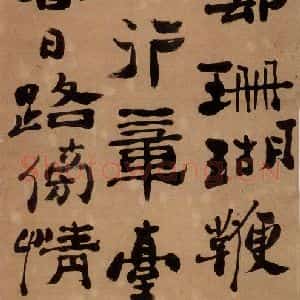 珊瑚鞭
行章臺
日路傍情